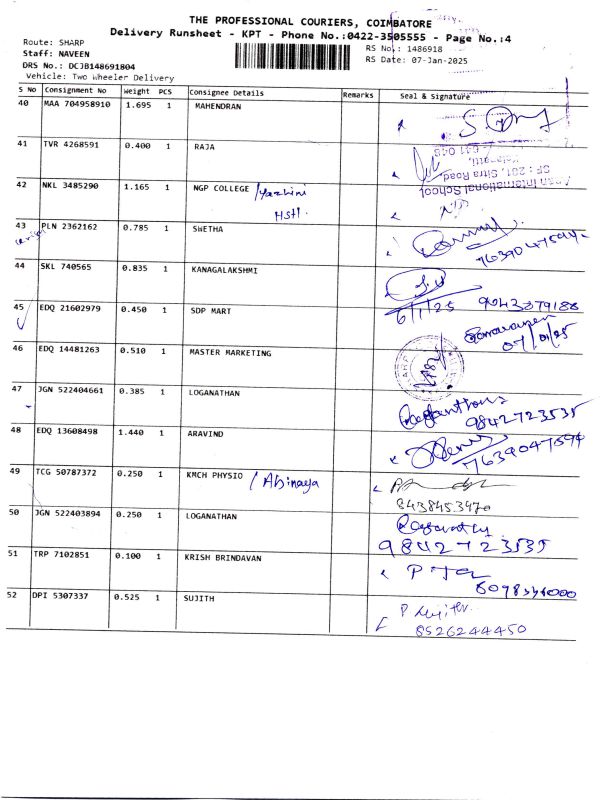 THE PROFESSIONAL COURIERS, COIMBATORE
Delivery Runsheet - KPT - Phone No.:0422-3505555 - Page No.:4
Route: SHARP
RS No.: 1486918
Staff: NAVEEN
RS Date: 07-Jan-2025
DRS No.: DCJB148691804
Vehicle: Two Wheeler Delivery
S No Consignment No Weight PCS Consignee Details Remarks Seal & Signature
40 MAA 704958910 1.695 1 MAHENDRAN
41 TVR 4268591 0.400 1 RAJA
641 048
SF : 201, Sitra Road
International School
42 NKL 3485290 1.165 1 NGP COLLEGE / Yazhini
Hstl.
43 PLN 2362162 0.785 1 SWETHA
7639047594
44 SKL 740565 0.835 1 KANAGALAKSHMI
6/1/25 9643079188
45 EDQ 21602979 0.450 1 SDP MART
07/01/25
46 EDQ 14481263 0.510 1 MASTER MARKETING
47 JGN 522404661 0.385 1 LOGANATHAN
9842723535
48 EDQ 13608498 1.440 1 ARAVIND
7639047594
49 TCG 50787372 0.250 1 KMCH PHYSIO / Abinaya
8438453970
50 JGN 522403894 0.250 1 LOGANATHAN
9842723535
51 TRP 7102851 0.100 1 KRISH BRINDAVAN
52 DPI 5307337 0.525 1 SUJITH
P Sujith
8526244450